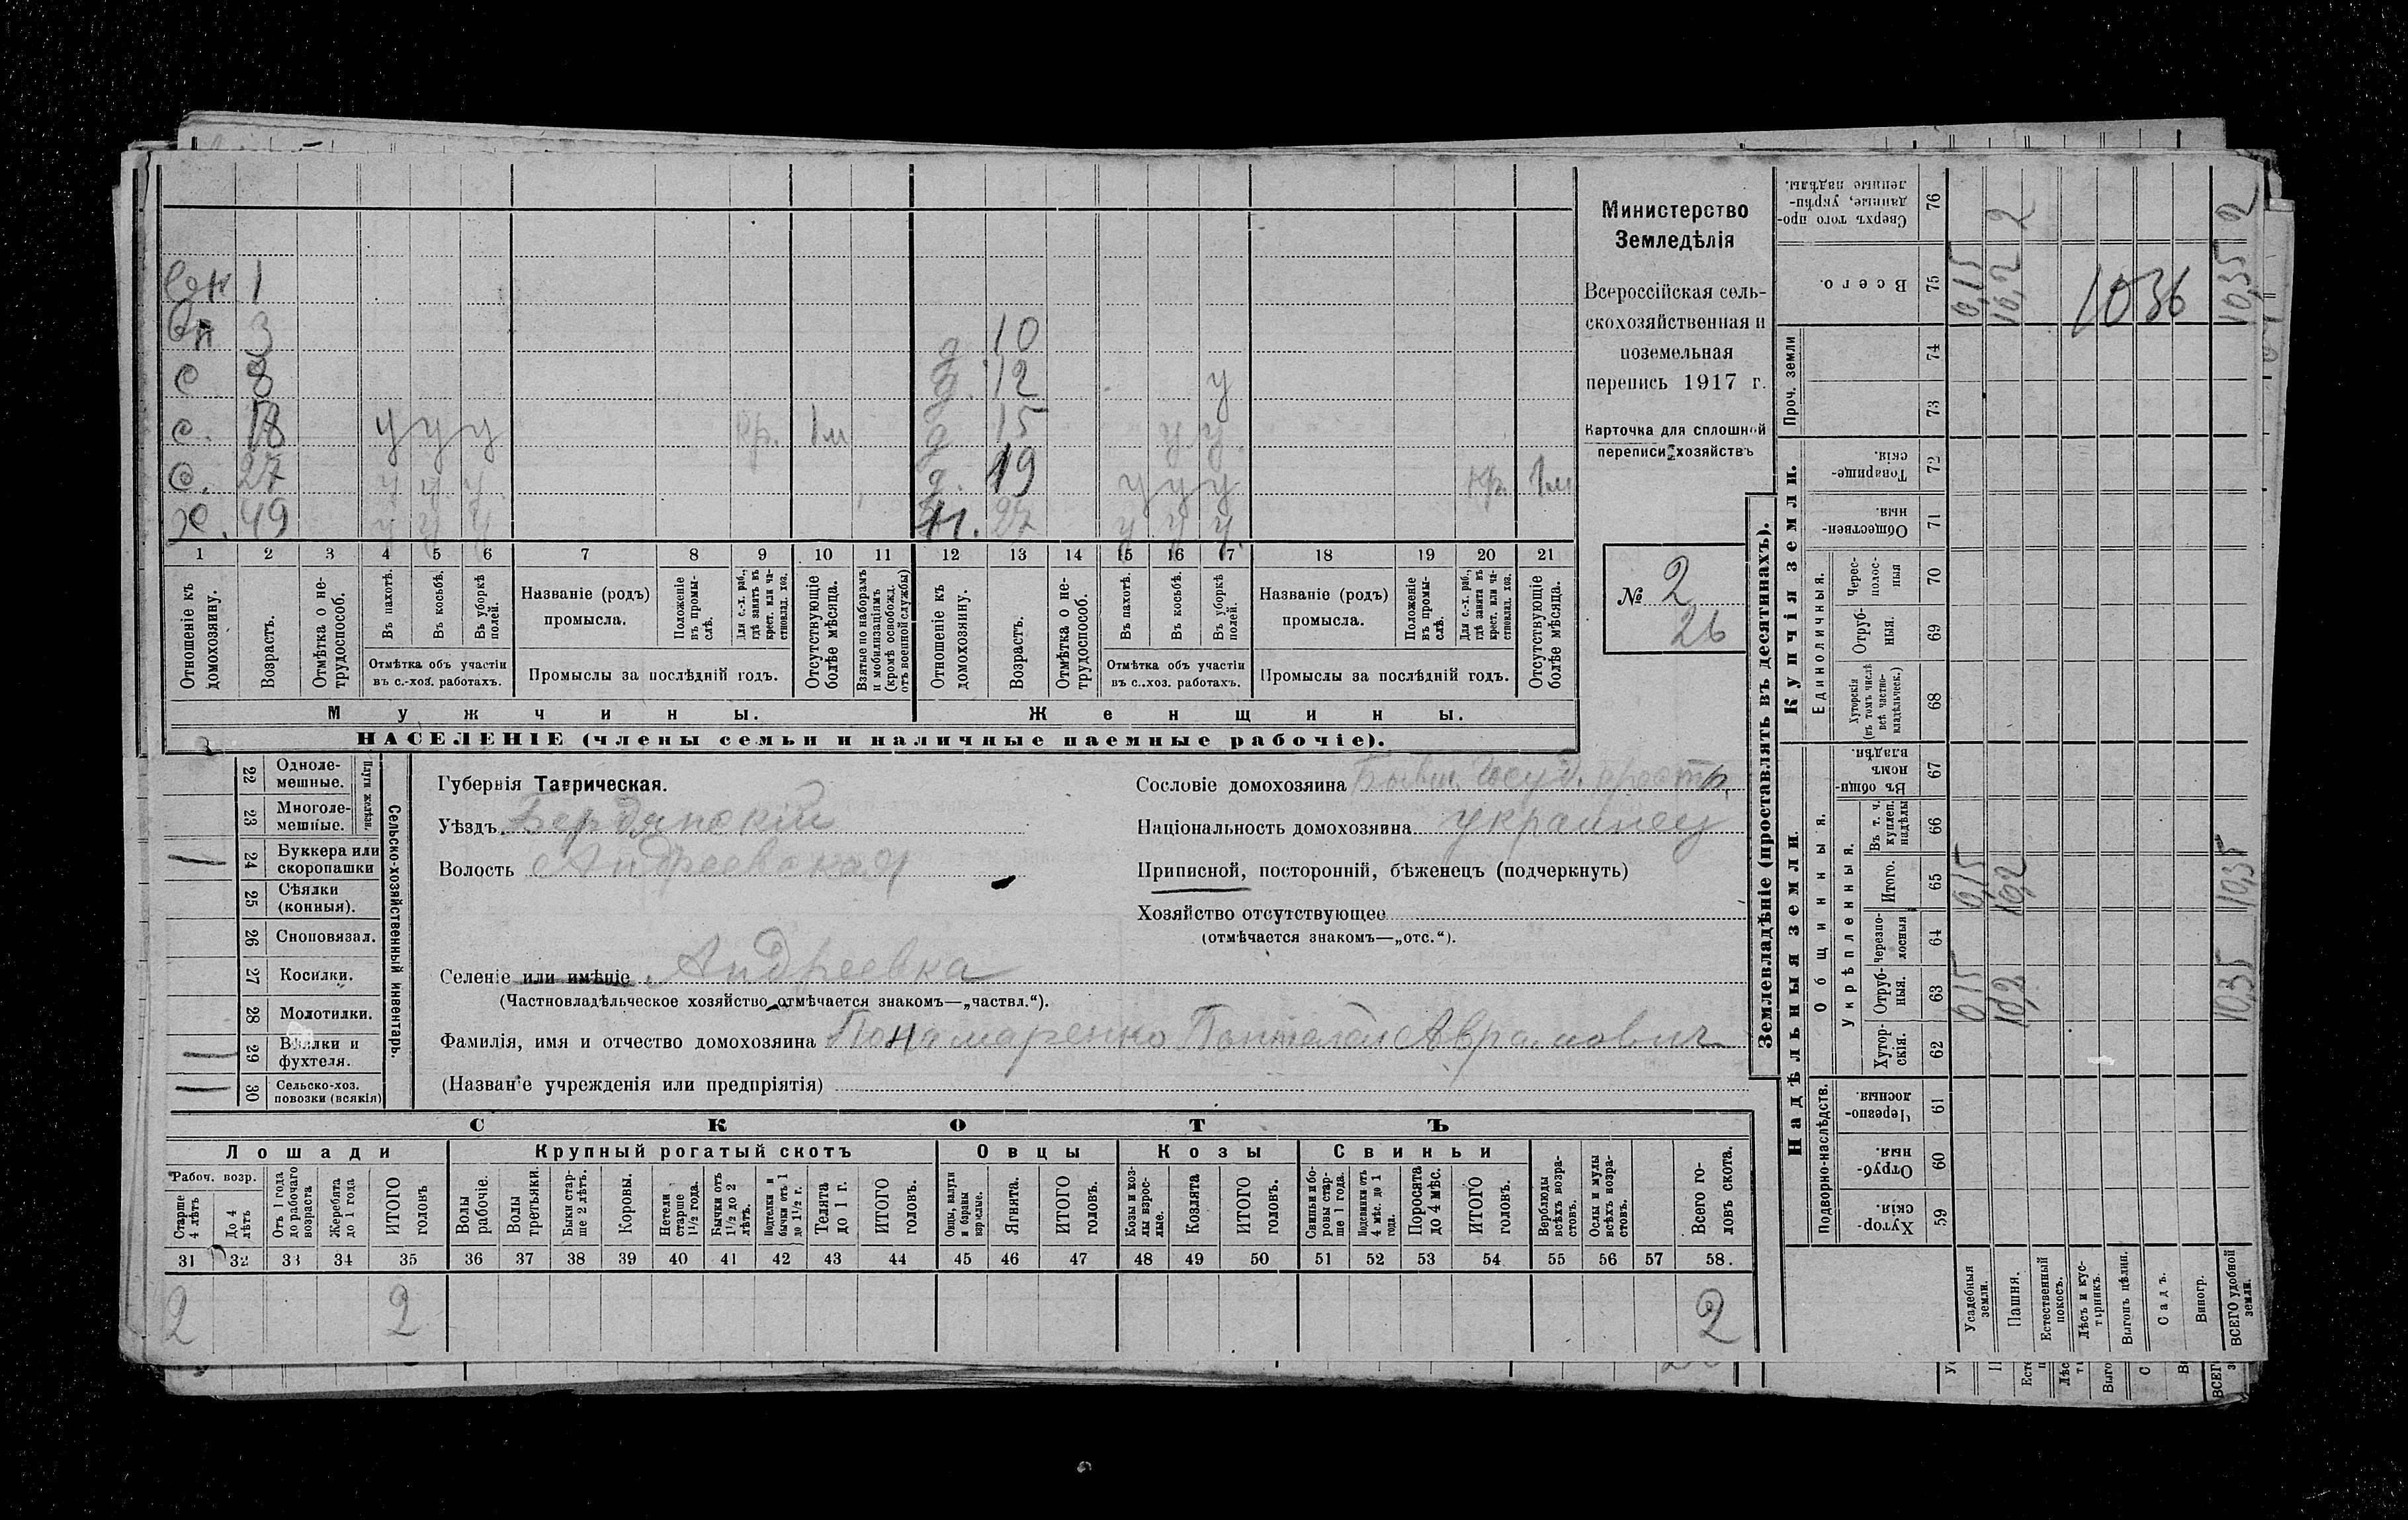 Министерство
Земледѣлія
Всероссійская сель-
скохозяйственная и
поземельная
перепись 1917 г.
Карточка для сплошной
переписи хозяйствъ
№ 2
26
1
3
С 8
С. 18 у у у 1м
С. 27 у у у
Х. 49 у у у
д 10
д. 12 у
д 15 у у
д. 19 у у у кр. 1м
27 у у у
1 2 3 4 5 6 7 8 9 10 11 12 13 14 15 16 17 18 19 20 21
Отношеніе къ домохозяину.
Возрастъ.
Отмѣтка о не-трудоспособ.
Въ пахотѣ.
Въ косьбѣ.
Въ уборкѣ полей.
Отмѣтка объ участіи въ с.-хоз. работахъ.
Названіе (родъ) промысла.
Положеніе въ промы-слѣ.
Для с.-х. раб., гдѣ занятъ въ крест. или ча-стновлад. хоз.
Промыслы за послѣдній годъ.
Отсутствующіе болѣе мѣсяца.
Взятые по наборамъ и мобилизаціямъ (кромѣ освобожд. отъ военной службы)
Отношеніе къ домохозяину.
Возрастъ.
Отмѣтка о не-трудоспособ.
Въ пахотѣ.
Въ косьбѣ.
Въ уборкѣ полей.
Отмѣтка объ участіи въ с.-хоз. работахъ.
Названіе (родъ) промысла.
Положеніе въ промы-слѣ.
Для с.-х. раб., гдѣ занята въ крест. или ча-стновлад. хоз.
Промыслы за послѣдній годъ.
Отсутствующіе болѣе мѣсяца.
Мужчины. Женщины.
НАСЕЛЕНІЕ (члены семьи и наличные наемные рабочіе).
22 Одноле-мешные.
23 Многоле-мешные.
Плуги желѣзн.
24 Буккера или скоропашки
25 Сѣялки (конныя).
26 Сноповязал.
27 Косилки.
28 Молотилки.
29 Вѣялки и фухтеля.
30 Сельско-хоз. повозки (всякія)
Сельско-хозяйственный инвентарь.
Губернія Таврическая.
Уѣздъ Бердянскій
Волость Андреевская
Селеніе или имѣніе Андреевка
(Частновладѣльческое хозяйство отмѣчается знакомъ—„частвл.“).
Фамилія, имя и отчество домохозяина Понамаренко Пантелей Аврамовичъ
(Названіе учрежденія или предпріятія)
Сословіе домохозяина Бывш. Госуд.
Національность домохозяина украинец
Приписной, посторонній, бѣженецъ (подчеркнуть)
Хозяйство отсутствующее
(отмѣчается знакомъ—„отс.“).
СКОТЪ
Лошади Крупный рогатый скотъ Овцы Козы Свиньи
Рабоч. возр.
Старше 4 лѣтъ
До 4 лѣтъ
Отъ 1 года до рабочаго возраста
Жеребята до 1 года
ИТОГО головъ
Волы рабочіе.
Волы третьяки.
Быки стар-ше 2 лѣтъ.
Коровы.
Нетели старше 1½ года.
Бычки отъ 1½ до 2 лѣтъ.
Подтелки и бычки отъ 1 до 1½ г.
Телята до 1 г.
ИТОГО головъ.
Овцы, валухи и бараны взрослые.
Ягнята.
ИТОГО головъ.
Козы и коз-лы взрос-лые.
Козлята
ИТОГО головъ.
Свиньи и бо-ровы стар-ше 1 года.
Подсвинки отъ 4 мѣс. до 1 года.
Поросята до 4 мѣс.
ИТОГО головъ.
Верблюды всѣхъ возра-стовъ.
Ослы и мулы всѣхъ возра-стовъ.
Всего го-ловъ скота.
31 32 33 34 35 36 37 38 39 40 41 42 43 44 45 46 47 48 49 50 51 52 53 54 55 56 57 58.
2 2 2
Землевладѣніе (проставлять въ десятинахъ).
Надѣльныя земли. Купчія земли.
Подворно-наслѣдств.
Общинныя.
Укрѣпленныя.
Единоличныя.
Проч. земли
Хутор-скія. 59
Отруб-ныя. 60
Черезпо-лосныя. 61
Хутор-скія. 62
Отруб-ныя. 63
Черезпо-лосныя 64
Итого. 65
Въ т. ч. куплен. надѣлы 66
Въ общин-номъ владѣн. 67
Хуторскія (въ томъ числѣ всѣ частно-владѣльческ.) 68
Отруб-ныя. 69
Черес-полос-ныя 70
Обществен-ныя. 71
Товарище-скія. 72
73
74
Всего. 75
Сверхъ того про-данные, укрѣп-ленные надѣлы. 76
Усадебныя земли. 0,15 0,15 0,15
Пашня. 10,2 10,2 10,2 2
Естественный покосъ.
Лѣсъ и кус-тарникъ.
Выгонъ цѣлин.
Садъ.
Виногр.
ВСЕГО удобной земли. 10,35 10,35 10,35 2
1036